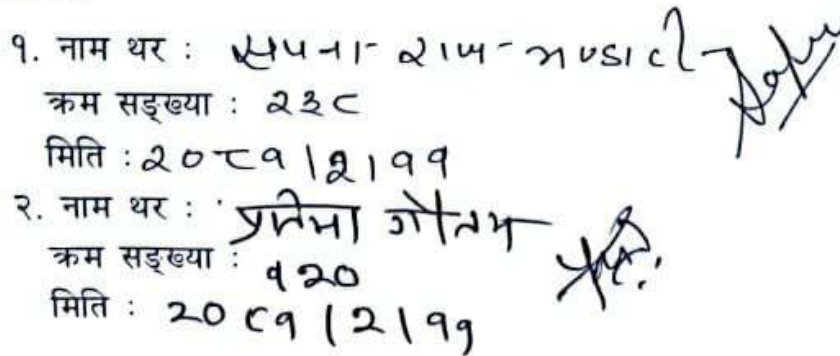 १. नाम थर : सपना राज भण्डारी
क्रम सङ्ख्या : २३८
मिति : २०८१।२।११
२. नाम थर : प्रतिमा गौतम
क्रम सङ्ख्या : १२०
मिति : २०८१।२।११